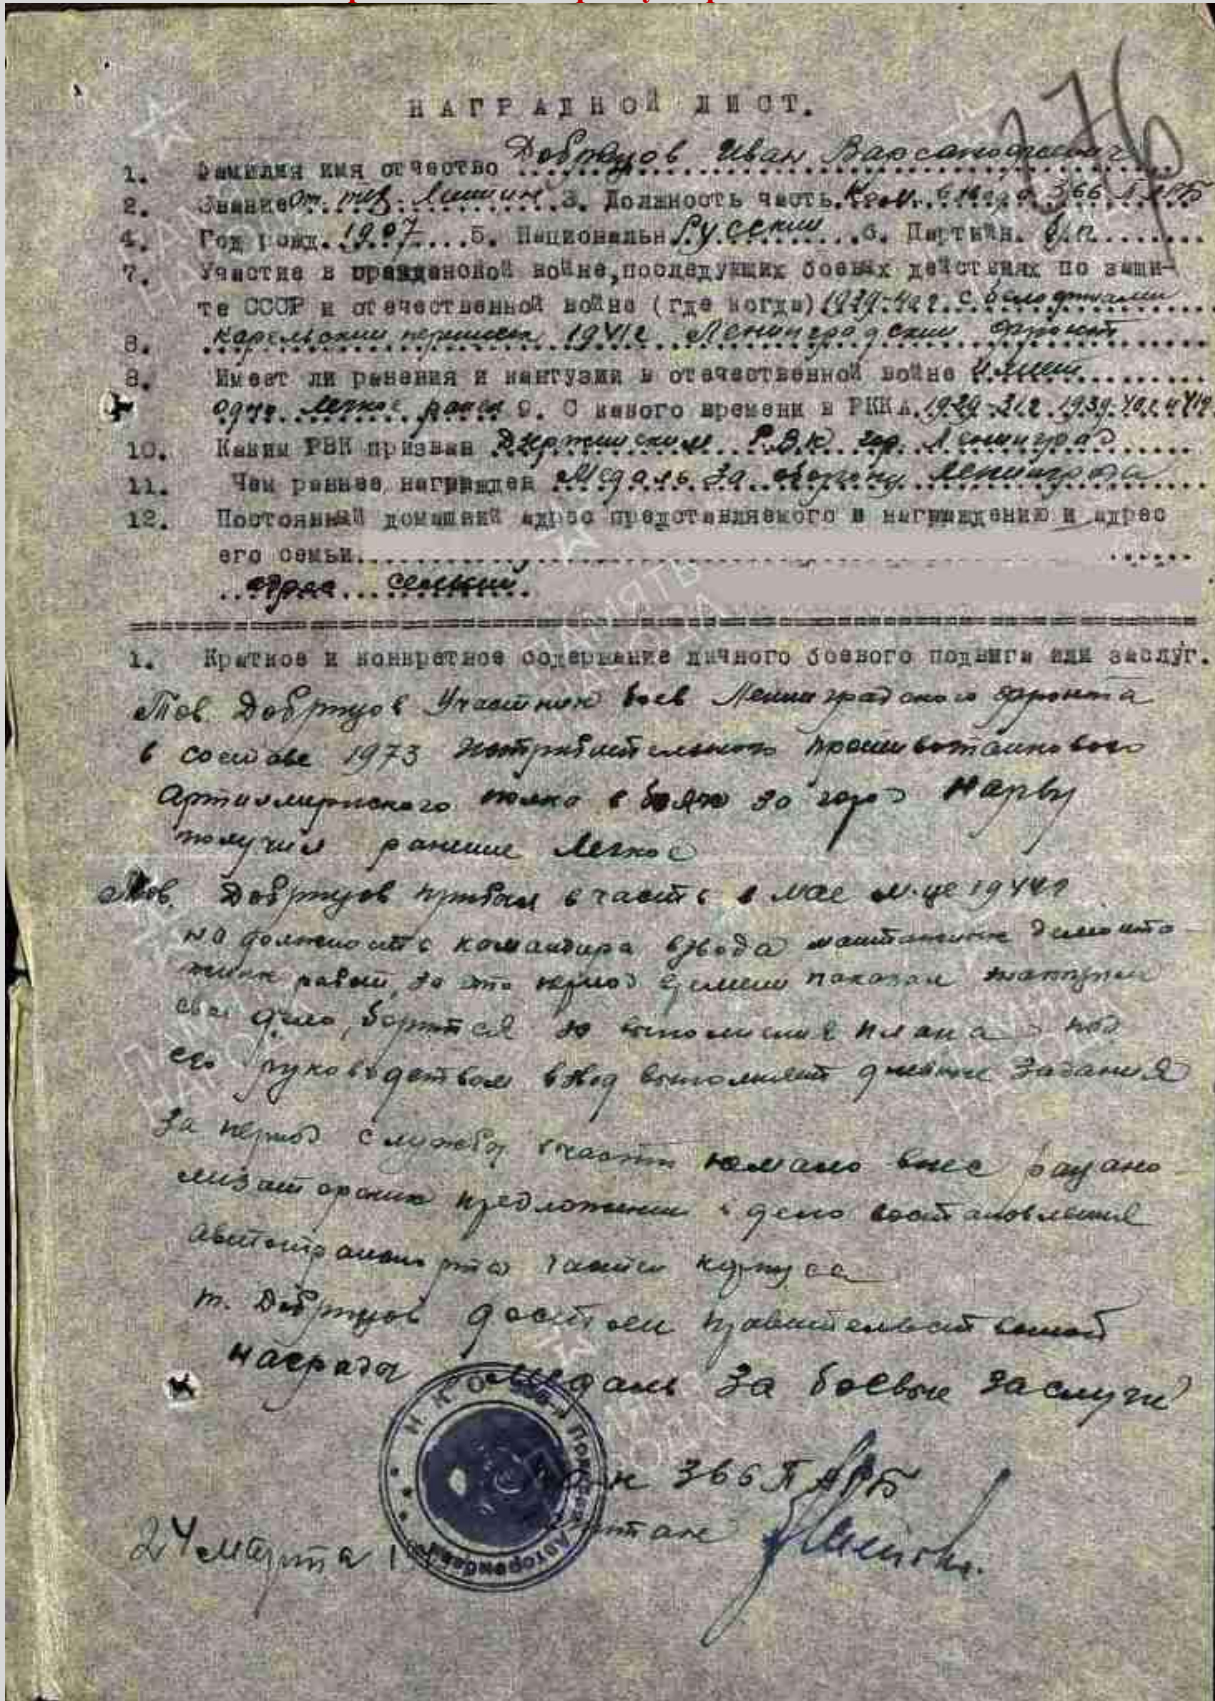 НАГРАДНОЙ ЛИСТ.
1. Фамилия имя отчество Добрецов Иван Варсанофиевич
2. Звание ст. тех. лейтен 3. Должность часть Ком. взвода 366 ПАРБ
4. Год рожд. 1907 5. Национальн Русский 6. Партийн. б/п
7. Участие в гражданской войне, последующих боевых действиях по защи-
те СССР и отечественной войне (где когда) 1939-40 г. с белофинами
8. Карельский перешеек 1941 г Ленинградский фронт
8. Имеет ли ранения и контузии в отечественной войне имеет
одно легкое ранен 9. С какого времени в РККА. 1929-31 г. 1939-40 г.
10. Каким РВК призван Дзержинским Р.В.К гор. Ленинград
11. Чем раннее награжден Медаль За оборону Ленинграда
12. Постоянный домашний адрес представляемого к награждению и адрес
его семьи
адрес семьи
1. Краткое и конкретное содержание личного боевого подвига или заслуг.
Тов. Добрецов Участник боев Ленинградского фронта
в составе 1973 истребительного противотанкового
Артиллерийского полка в боях за город Нарву
получил ранение легкое
Тов. Добрецов прибыл в часть в мае м-це 1944 г
на должность командира взвода монтажных демонта-
жных работ, за это период времени показал
свое дело, борется за выполнение плана под
его руководством взвод выполняет дневные задания
За период службы в части немало внес рацио
лизаторских предложений в дело востановления
автотранспорта частей корпуса
т. Добрецов достоен правительственной
награды Медаль За боевые заслуги
к-н 366 ПАРБ
капитан
24 марта 19
НКО
Авторемон
ПАМЯТЬ
НАРОДА